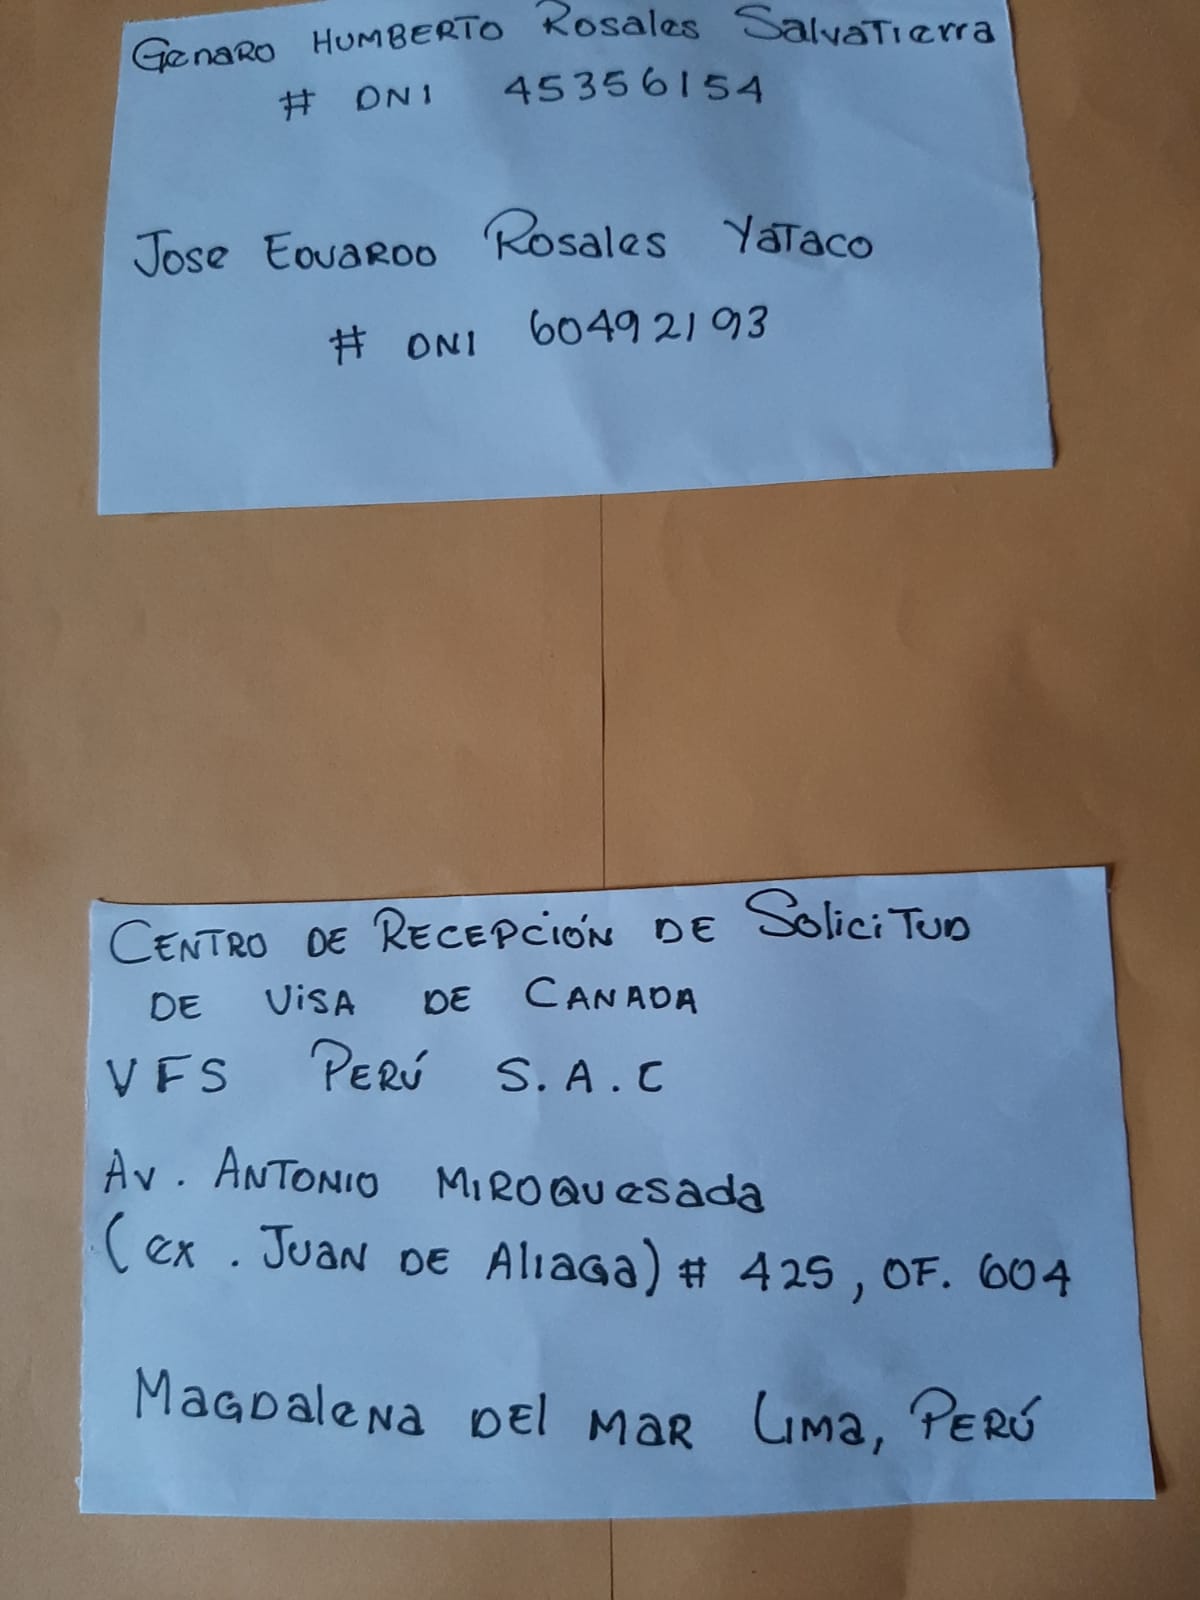 Genaro Humberto Rosales Salvatierra
# DNI 45356154
Jose Eduardo Rosales Yataco
# DNI 60492193
Centro de Recepción de Solicitud
de Visa de Canada
VFS Perú S.A.C
Av. Antonio Miroquesada
(ex. Juan de Aliaga) # 425, OF. 604
Magdalena del Mar Lima, Perú